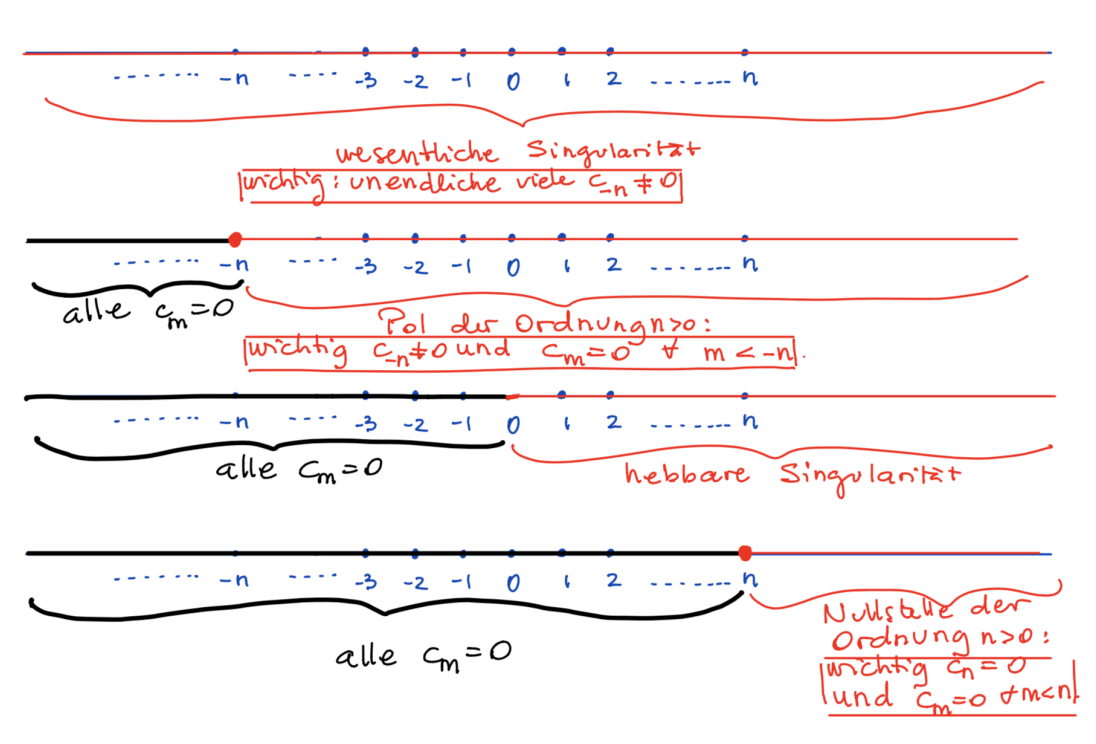 ....... -n .... -3 -2 -1 0 1 2 ....... n
wesentliche Singularität
wichtig: unendliche viele c_-n ≠ 0
....... -n .... -3 -2 -1 0 1 2 ....... n
alle c_m = 0
Pol der Ordnung n>0:
wichtig c_-n ≠ 0 und c_m = 0 ∀ m < -n.
....... -n .... -3 -2 -1 0 1 2 ....... n
alle c_m = 0
hebbare Singularität
....... -n .... -3 -2 -1 0 1 2 ....... n
alle c_m = 0
Nullstelle der
Ordnung n>0:
wichtig c_n = 0
und c_m = 0 ∀ m<n